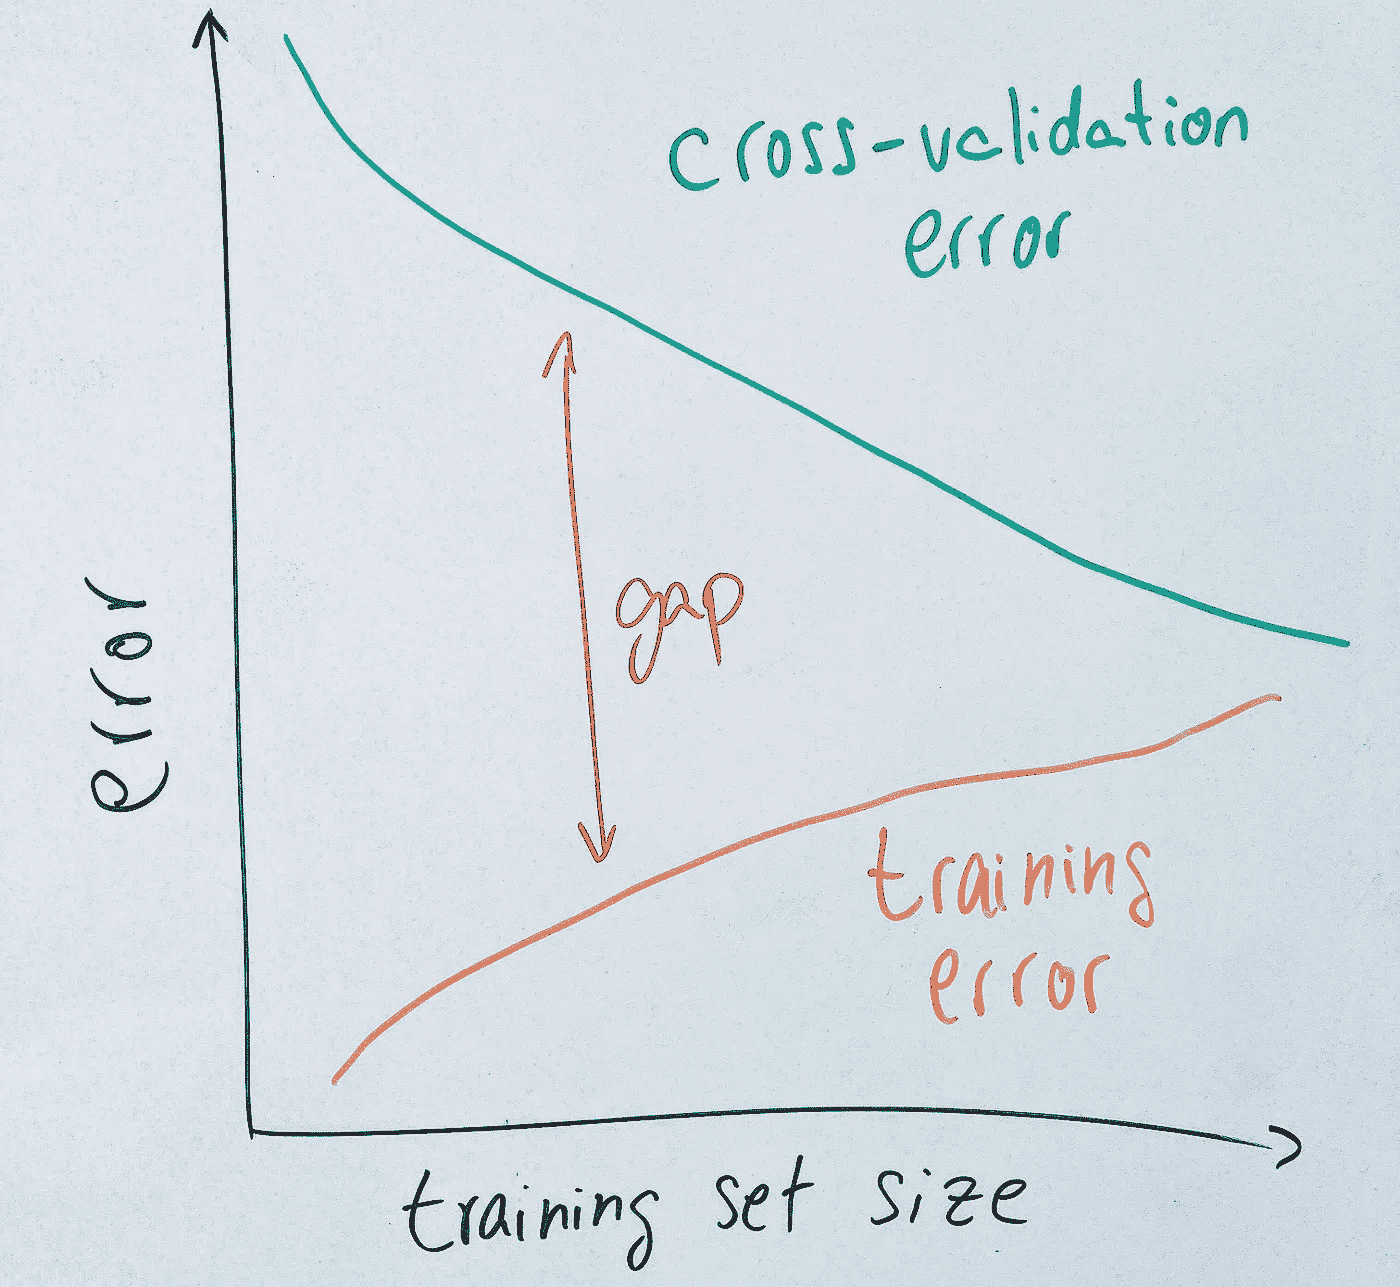 cross-validation
error
gap
error
training
error
training set size